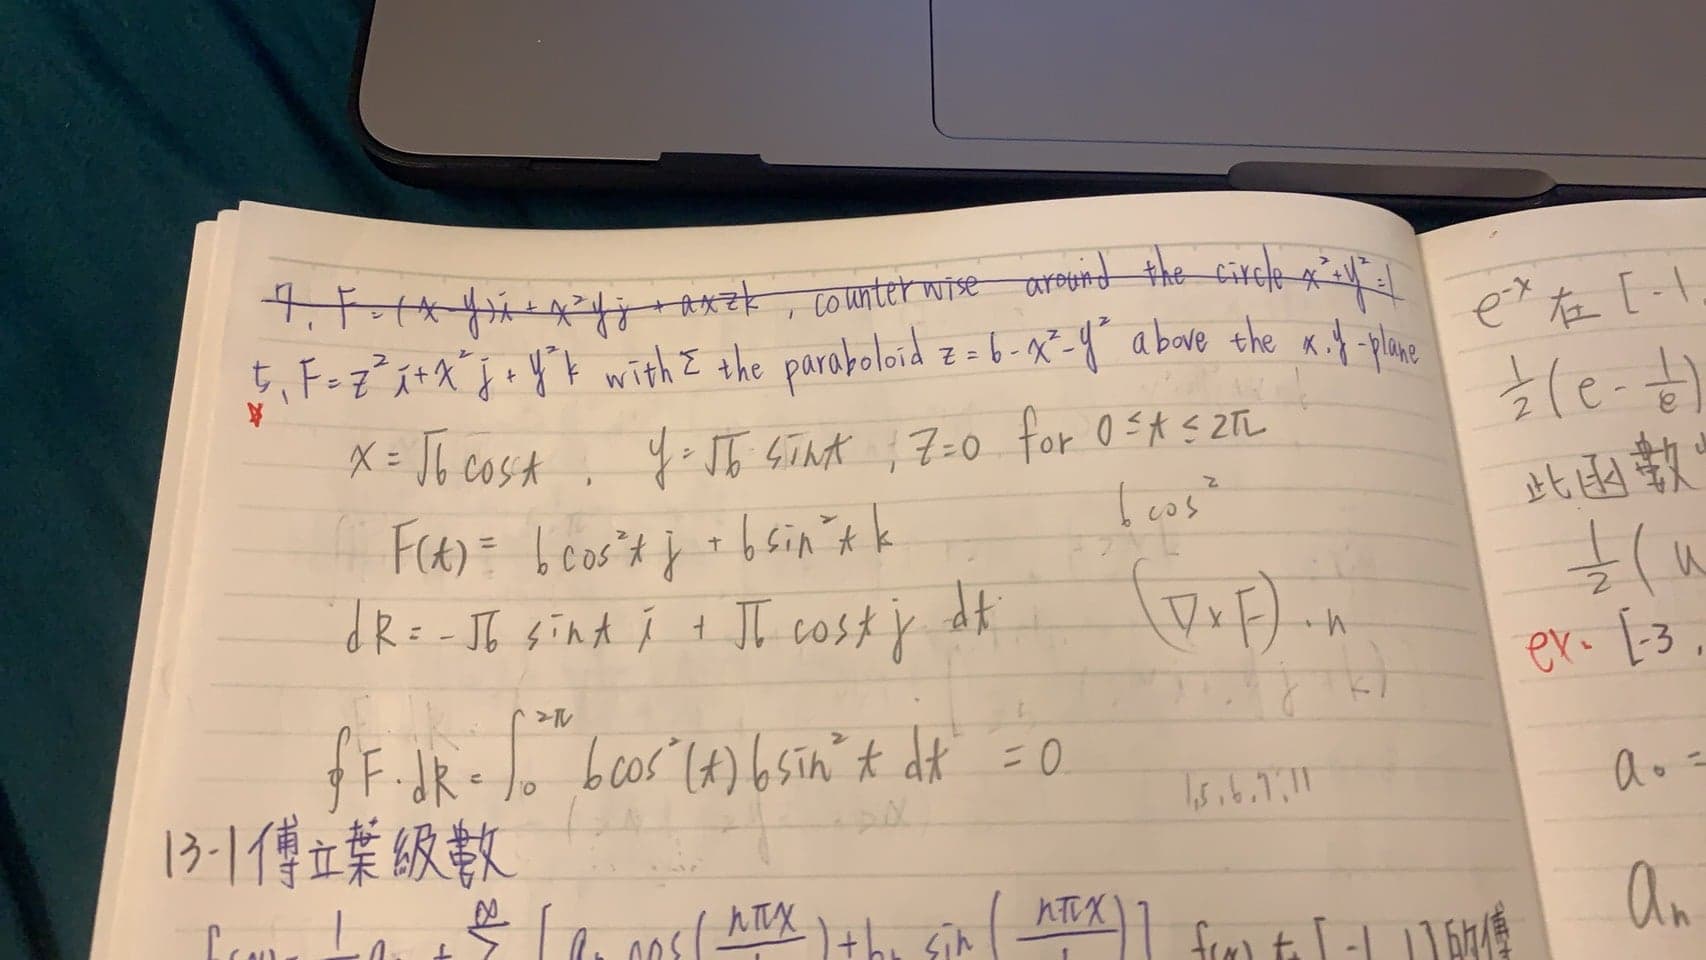 7. F = (x-y)i + x²yj + axzk , counterwise around the circle x²+y²=1
5. F = z²i + x²j + y²k with Σ the paraboloid z = 6-x²-y² above the x.y-plane
x = √6 cost , y = √6 sint , z=0 for 0≤t≤2π
6cos²
F(t) = 6cos²t j + 6sin²t k
dR = -√6 sint i + √6 cost j dt
(∇×F)·n
∮F·dR = ∫₀^2π 6cos²(t)6sin²t dt = 0
1,5,6,7,11
13-1傅立葉級數
∞
Σ
[ cos( nπx )+b sin( nπx )]
e^-x 在 [-1
1/2(e - 1/e)
此函數
1/2(
ex. [-3 ,
a₀ =
aₙ